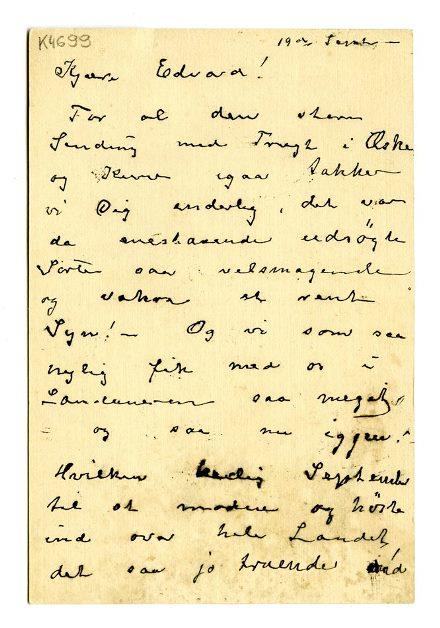 K4699
19de Sept. —
Kjære Edvard!
For al den store
Sending med Frugt i Æske
og Kurve igaar takker
vi Dig inderlig, det var
da enestaaende udsögte
Sorter saa velsmagende
og vakre et rent
Syn! — Og vi som saa
nylig fik med os i
saa meget,
— og saa nu iggjen! —
Hvilken deilig September
til at modne og höste
ind over hele Landet,
det saa jo truende ud